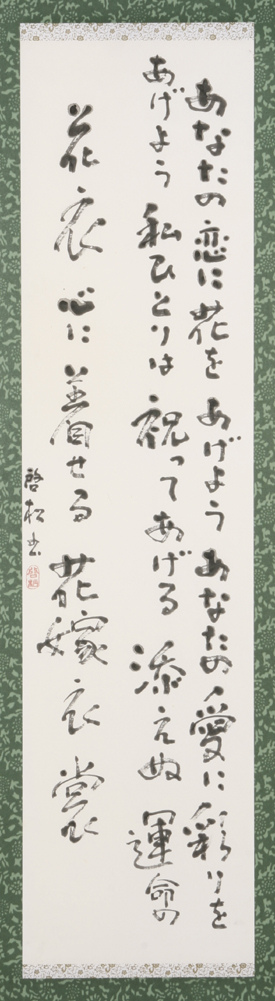 あなたの恋に花をあげようあなたの愛に彩りを
あげよう私ひとりは祝ってあげる添えぬ運命の
花衣心に着せる花嫁衣裳
啓松書